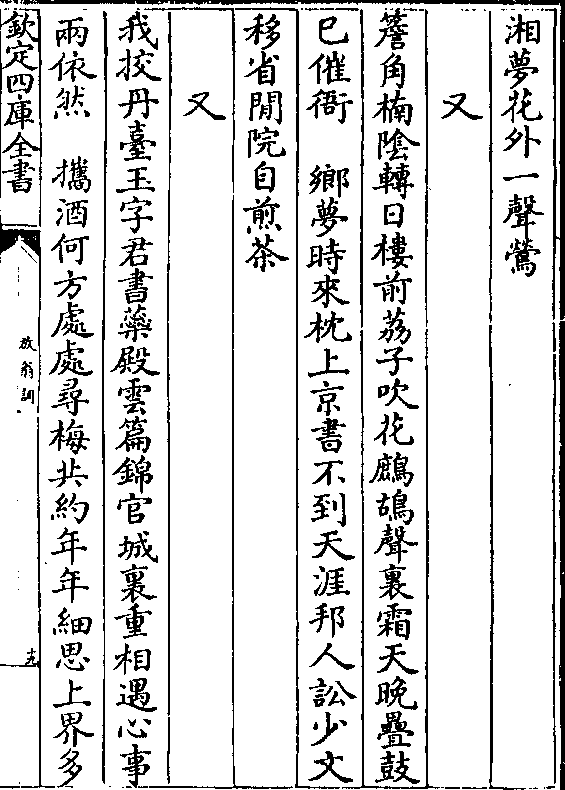 湘夢花外一聲鶯
又
簷角楠陰轉日樓前荔子吹花鷓鴣聲裏霜天晚疊鼓
已催衙　鄉夢時來枕上京書不到天涯邦人訟少文
移省閒院自煎茶
又
我挍丹臺玉字君書蘂殿雲篇錦官城裏重相遇心事
兩依然　攜酒何方處處尋梅共約年年細思上界多
欽定四庫全書
放翁詞
十九